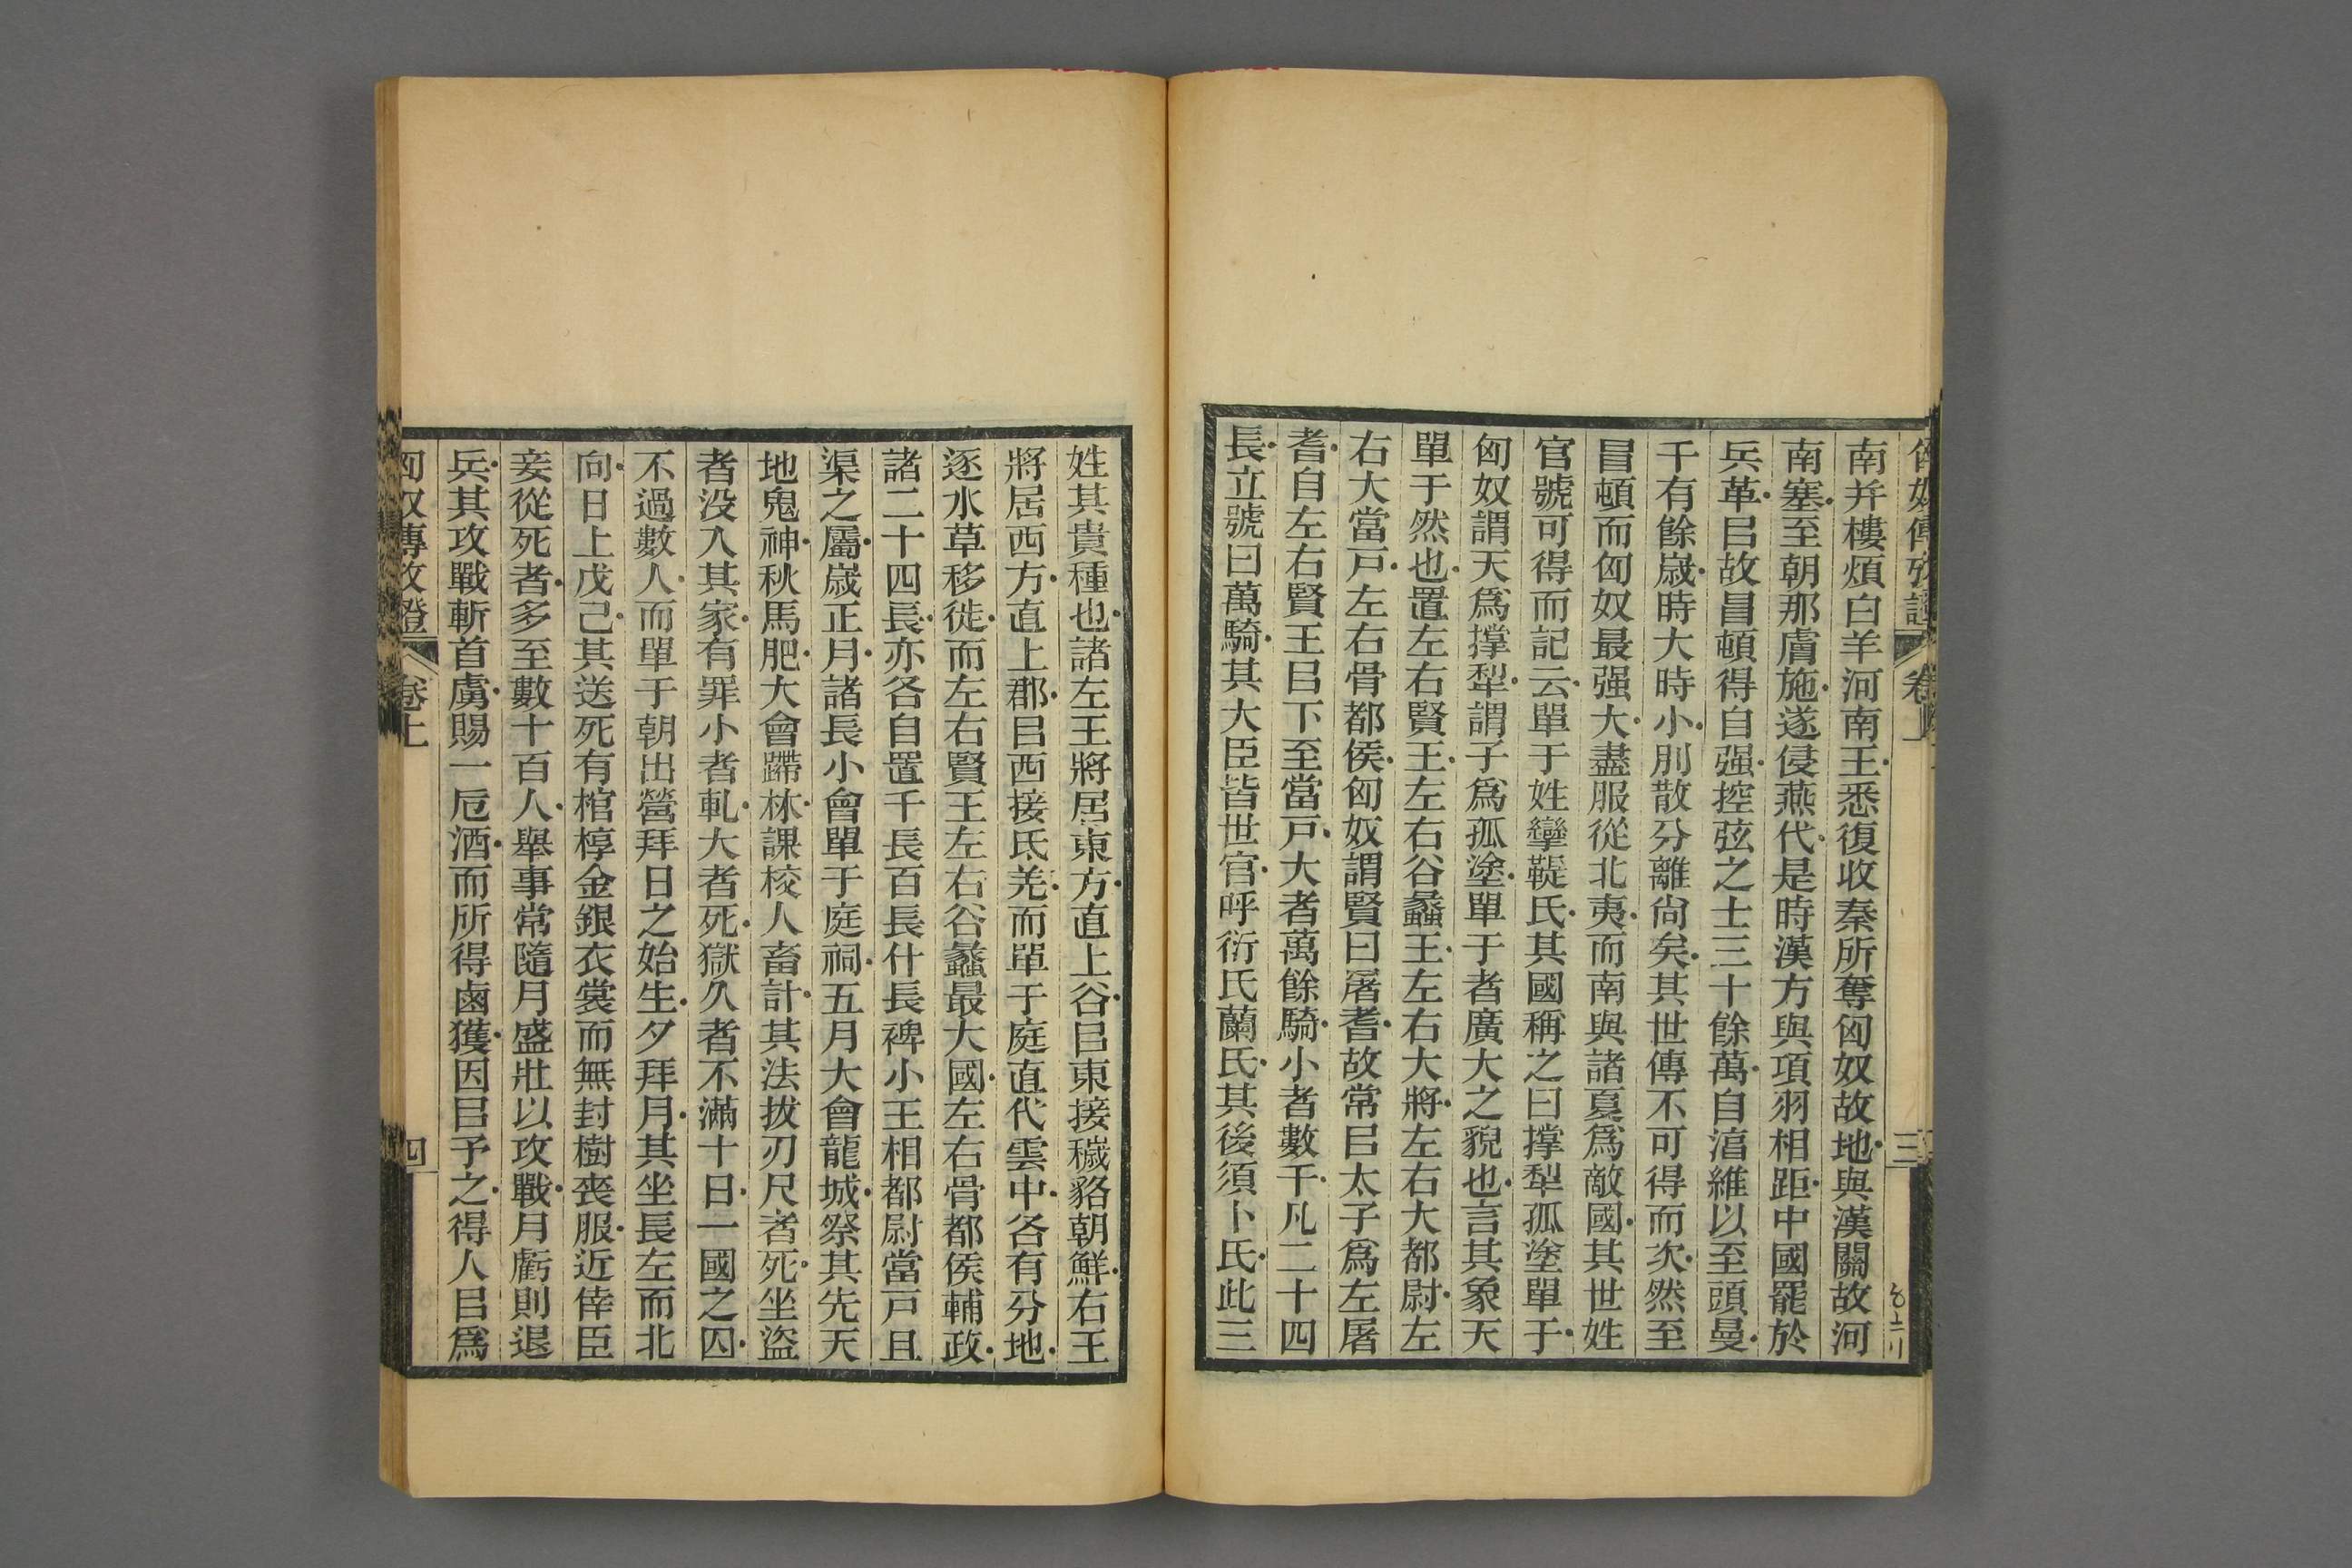 匈奴傳攷證
卷上
三
南并樓煩白羊河南王悉復收秦所奪匈奴故地與漢關故河
南塞至朝那膚施遂侵燕代是時漢方與項羽相距中國罷於
兵革㠯故冒頓得自强控弦之士三十餘萬自湻維以至頭曼
千有餘歲時大時小別散分離尙矣其世傳不可得而次然至
冒頓而匈奴最强大盡服從北夷而南與諸夏爲敵國其世姓
官號可得而記云單于姓攣鞮氏其國稱之曰撐犁孤塗單于
匈奴謂天爲撐犁謂子爲孤塗單于者廣大之貌也言其象天
單于然也置左右賢王左右谷蠡王左右大將左右大都尉左
右大當戸左右骨都侯匈奴謂賢曰屠耆故常㠯太子爲左屠
耆自左右賢王㠯下至當戸大者萬餘騎小者數千凡二十四
長立號曰萬騎其大臣皆世官呼衍氏蘭氏其後須卜氏此三
姓其貴種也諸左王將居東方直上谷㠯東接穢貉朝鮮右王
將居西方直上郡㠯西接氐羌而單于庭直代雲中各有分地
逐水草移徙而左右賢王左右谷蠡最大國左右骨都侯輔政
諸二十四長亦各自置千長百長什長裨小王相都尉當戸且
渠之屬歲正月諸長小會單于庭祠五月大會龍城祭其先天
地鬼神秋馬肥大會蹛林課校人畜計其法拔刃尺者死坐盜
者没入其家有罪小者軋大者死獄久者不滿十日一國之囚
不過數人而單于朝出營拜日之始生夕拜月其坐長左而北
向日上戊己其送死有棺椁金銀衣裳而無封樹喪服近倖臣
妾從死者多至數十百人舉事常隨月盛壯以攻戰月虧則退
兵其攻戰斬首虜賜一巵酒而所得鹵獲因㠯予之得人㠯爲
匈奴傳攷證
卷上
四